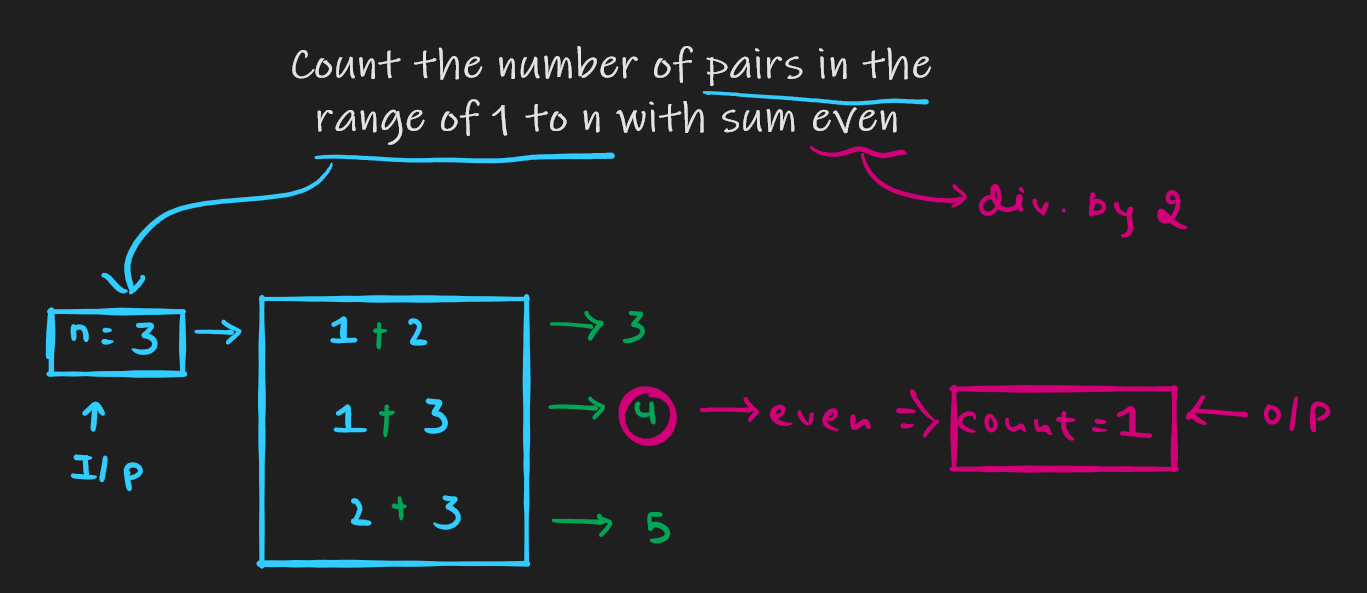 Count the number of pairs in the
range of 1 to n with sum even
div. by 2
n = 3
1 + 2 → 3
1 + 3 → 4 → even ⇒ count = 1 ← O/P
I/P
2 + 3 → 5